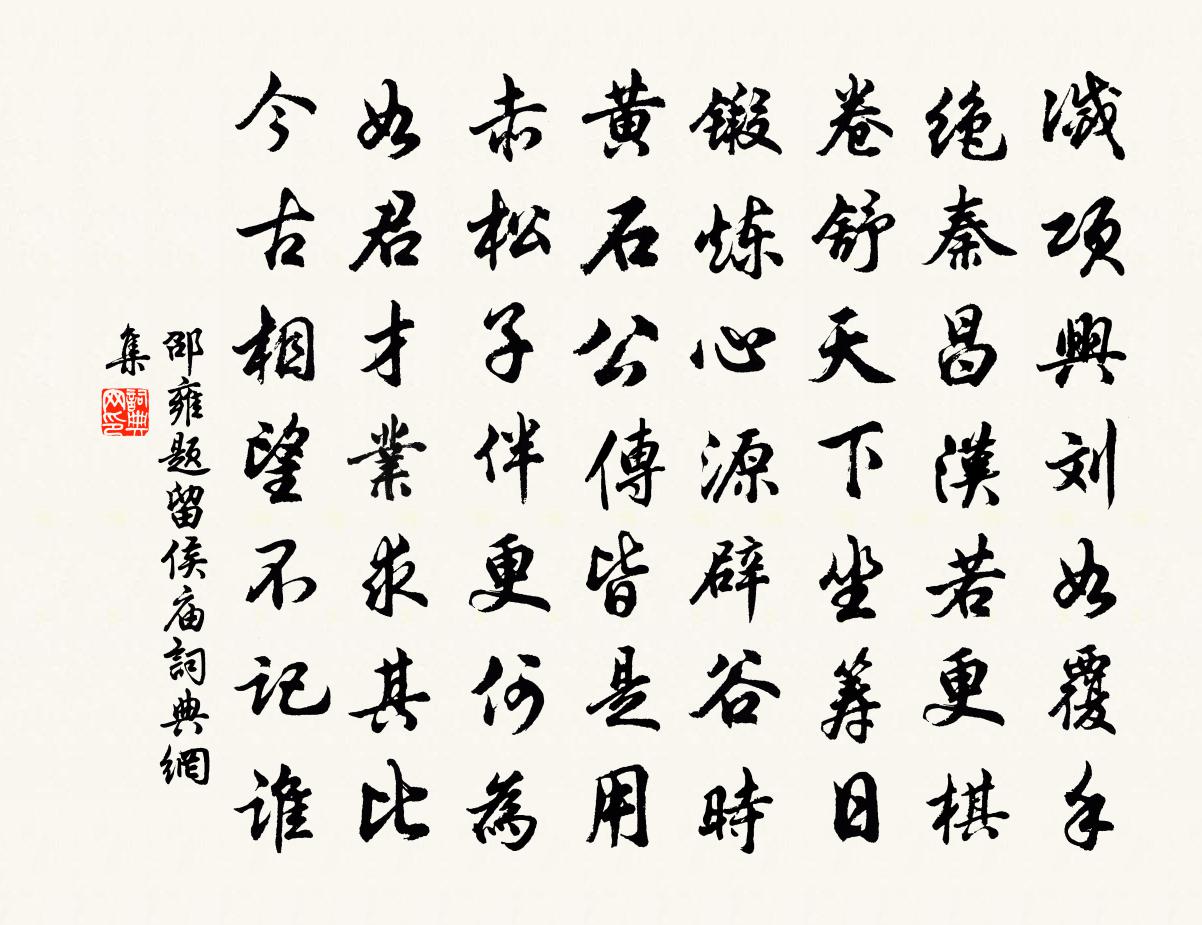 滅项興刘如覆手
绝秦昌漢若更棋
卷舒天下坐筹日
锻炼心源辟谷時
黄石公傳皆是用
赤松子伴更何為
如君才業求其比
今古相望不记谁
邵雍题留侯庙詞典網
集
詞典网印